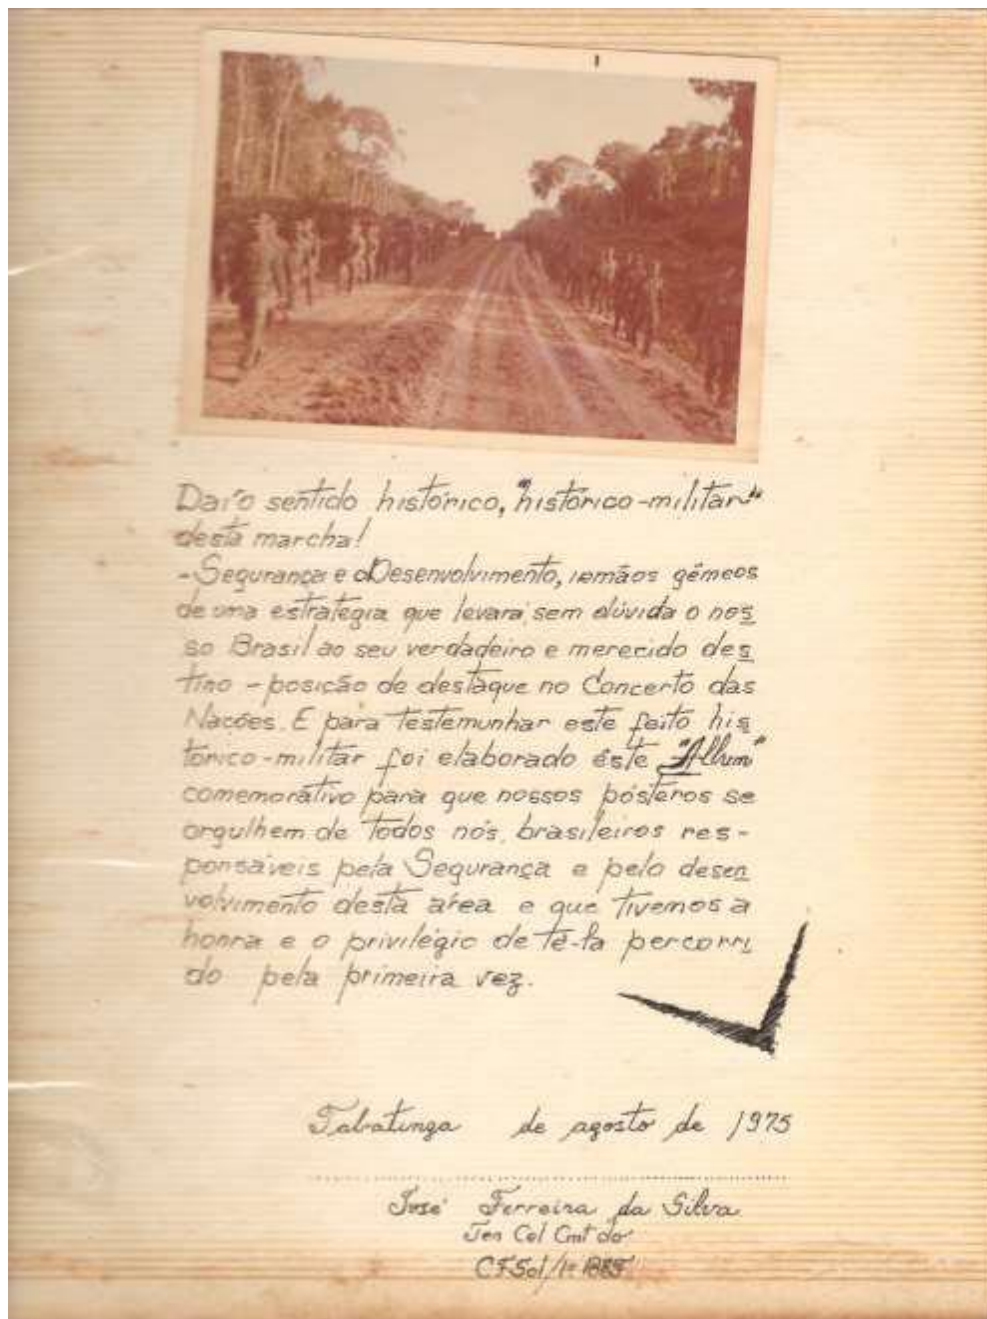 Daí o sentido histórico, "histórico-militar"
desta marcha!
- Segurança e Desenvolvimento, irmãos gêmeos
de uma estratégia que levará sem dúvida o nos
so Brasil ao seu verdadeiro e merecido des
tino - posição de destaque no Concerto das
Nações. E para testemunhar este feito his
tórico-militar foi elaborado êste "Album"
comemorativo para que nossos pósteros se
orgulhem de todos nós, brasileiros res-
ponsáveis pela Segurança e pelo desen
volvimento desta área e que tivemos a
honra e o privilégio de tê-la percorri
do pela primeira vez.
Tabatinga de agosto de 1975
José Ferreira da Silva
Ten Cel Cmt do
CFSol/1º